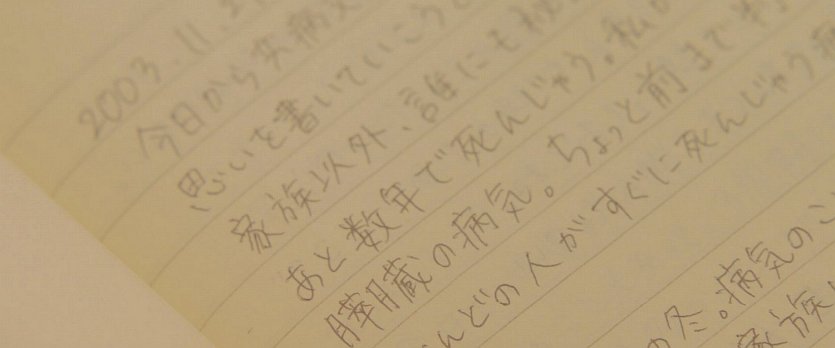 2003.11.2
今日から共病文
思いを書いていこうと
家族以外、誰にも秘
あと数年で死んじゃう。私の
膵臓の病気。ちょっと前まで判
んどの人がすぐに死んじゃう病
の冬。病気のこ
家族